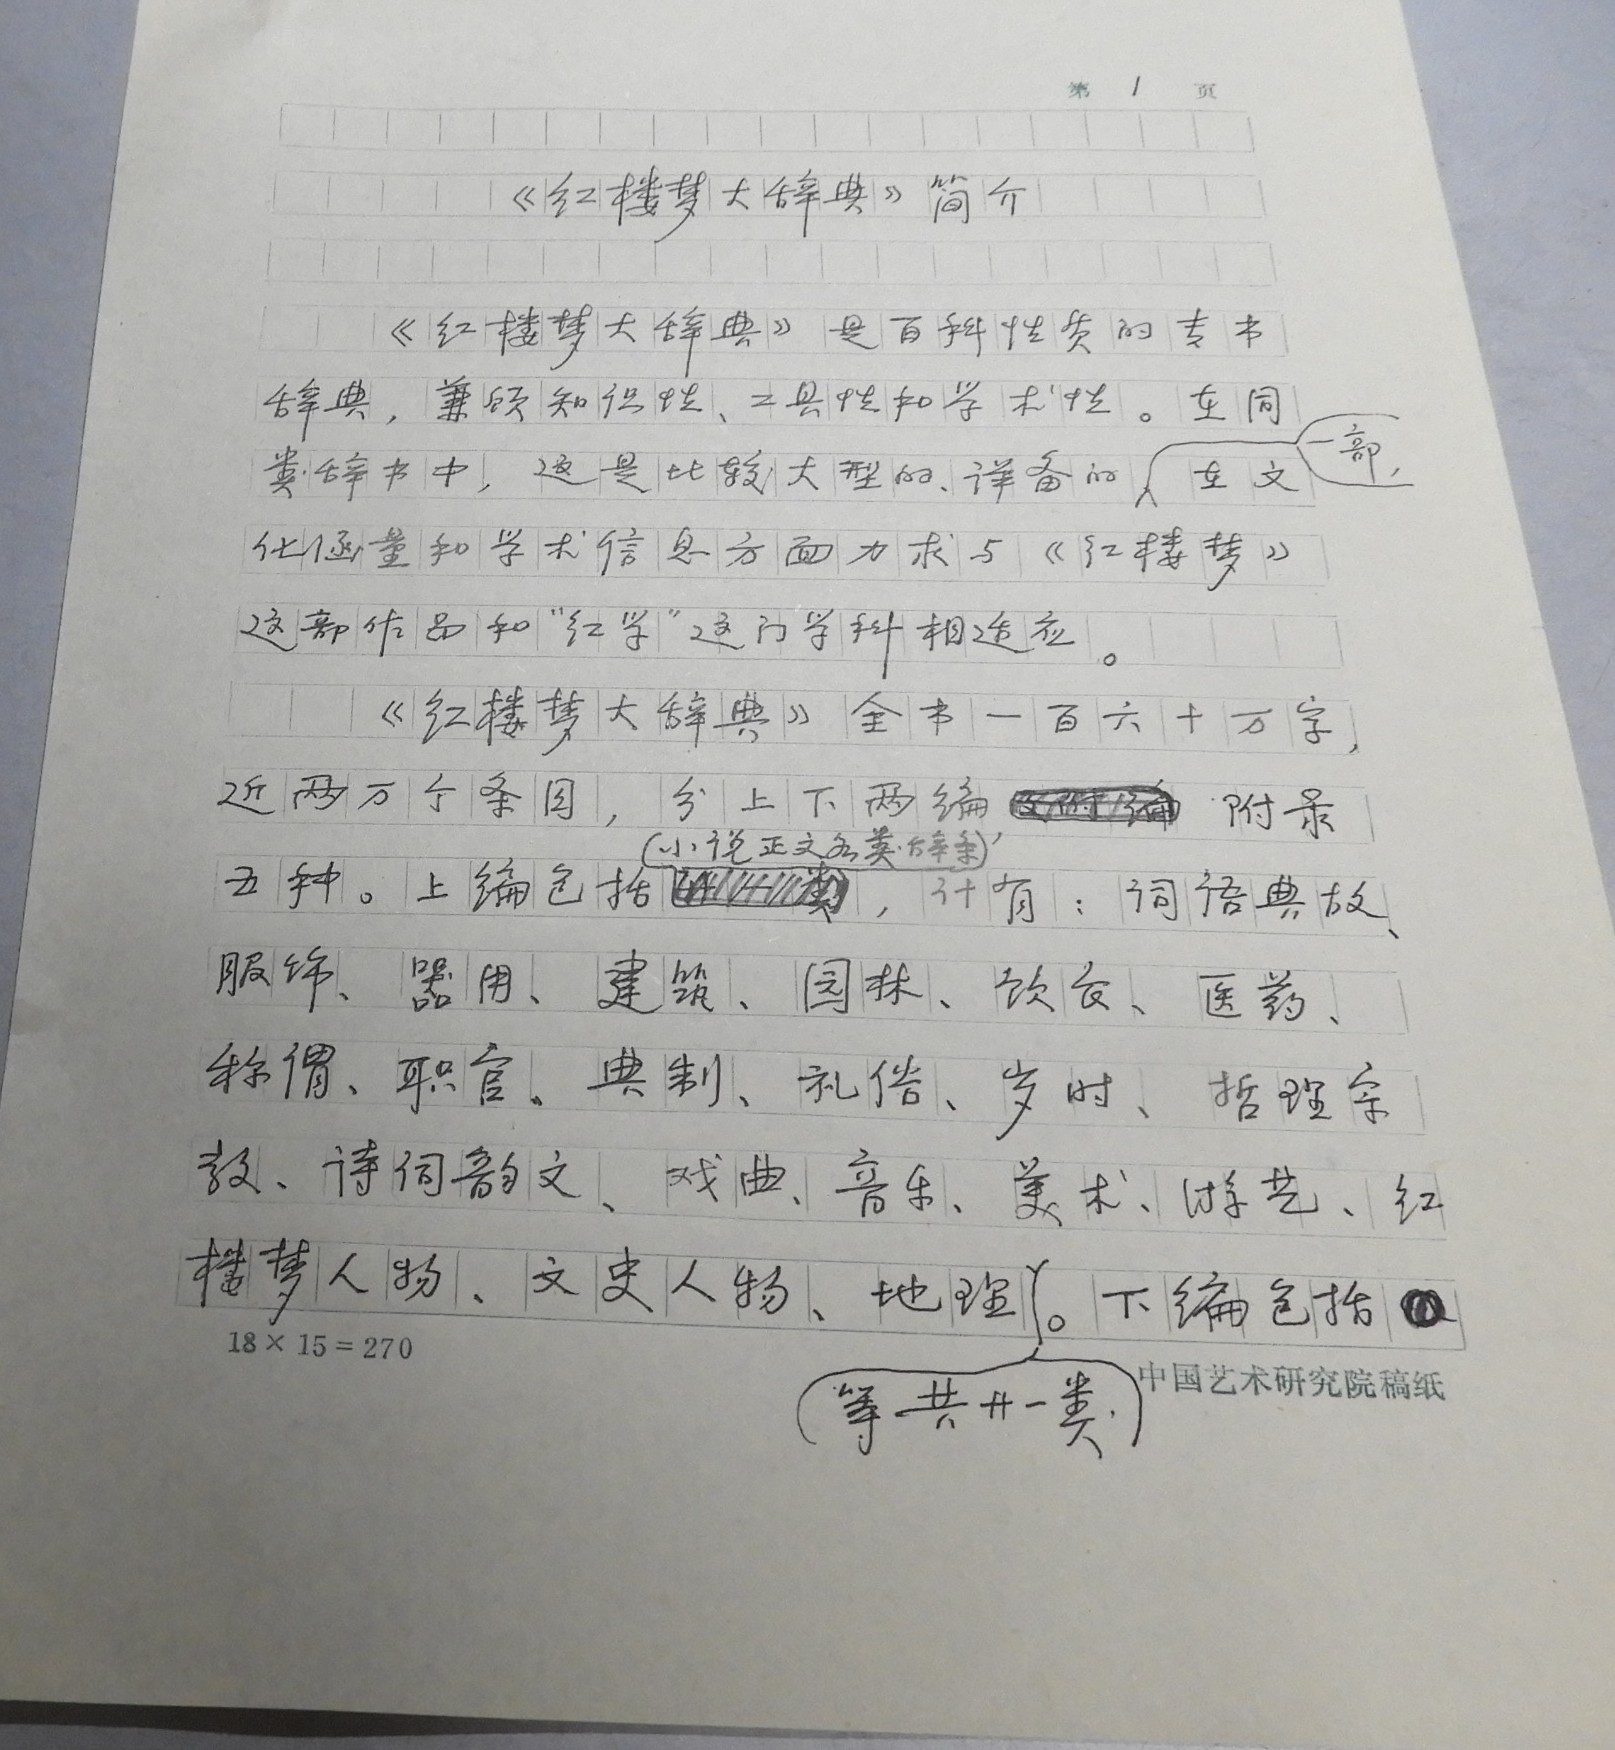 第 1 页
《红楼梦大辞典》简介
《红楼梦大辞典》是百科性质的专书
辞典，兼顾知识性、工具性和学术性。在同
类辞书中，这是比较大型的、详备的一部，在文
化涵量和学术信息方面力求与《红楼梦》
这部作品和"红学"这门学科相适应。
《红楼梦大辞典》全书一百六十万字，
近两万个条目，分上下两编，附录
五种。上编包括小说正文各类辞条，计有：词语典故、
服饰、器用、建筑、园林、饮食、医药、
称谓、职官、典制、礼俗、岁时、哲理宗
教、诗词韵文、戏曲、音乐、美术、游艺、红
楼梦人物、文史人物、地理等共廿一类。下编包括
18×15=270
中国艺术研究院稿纸